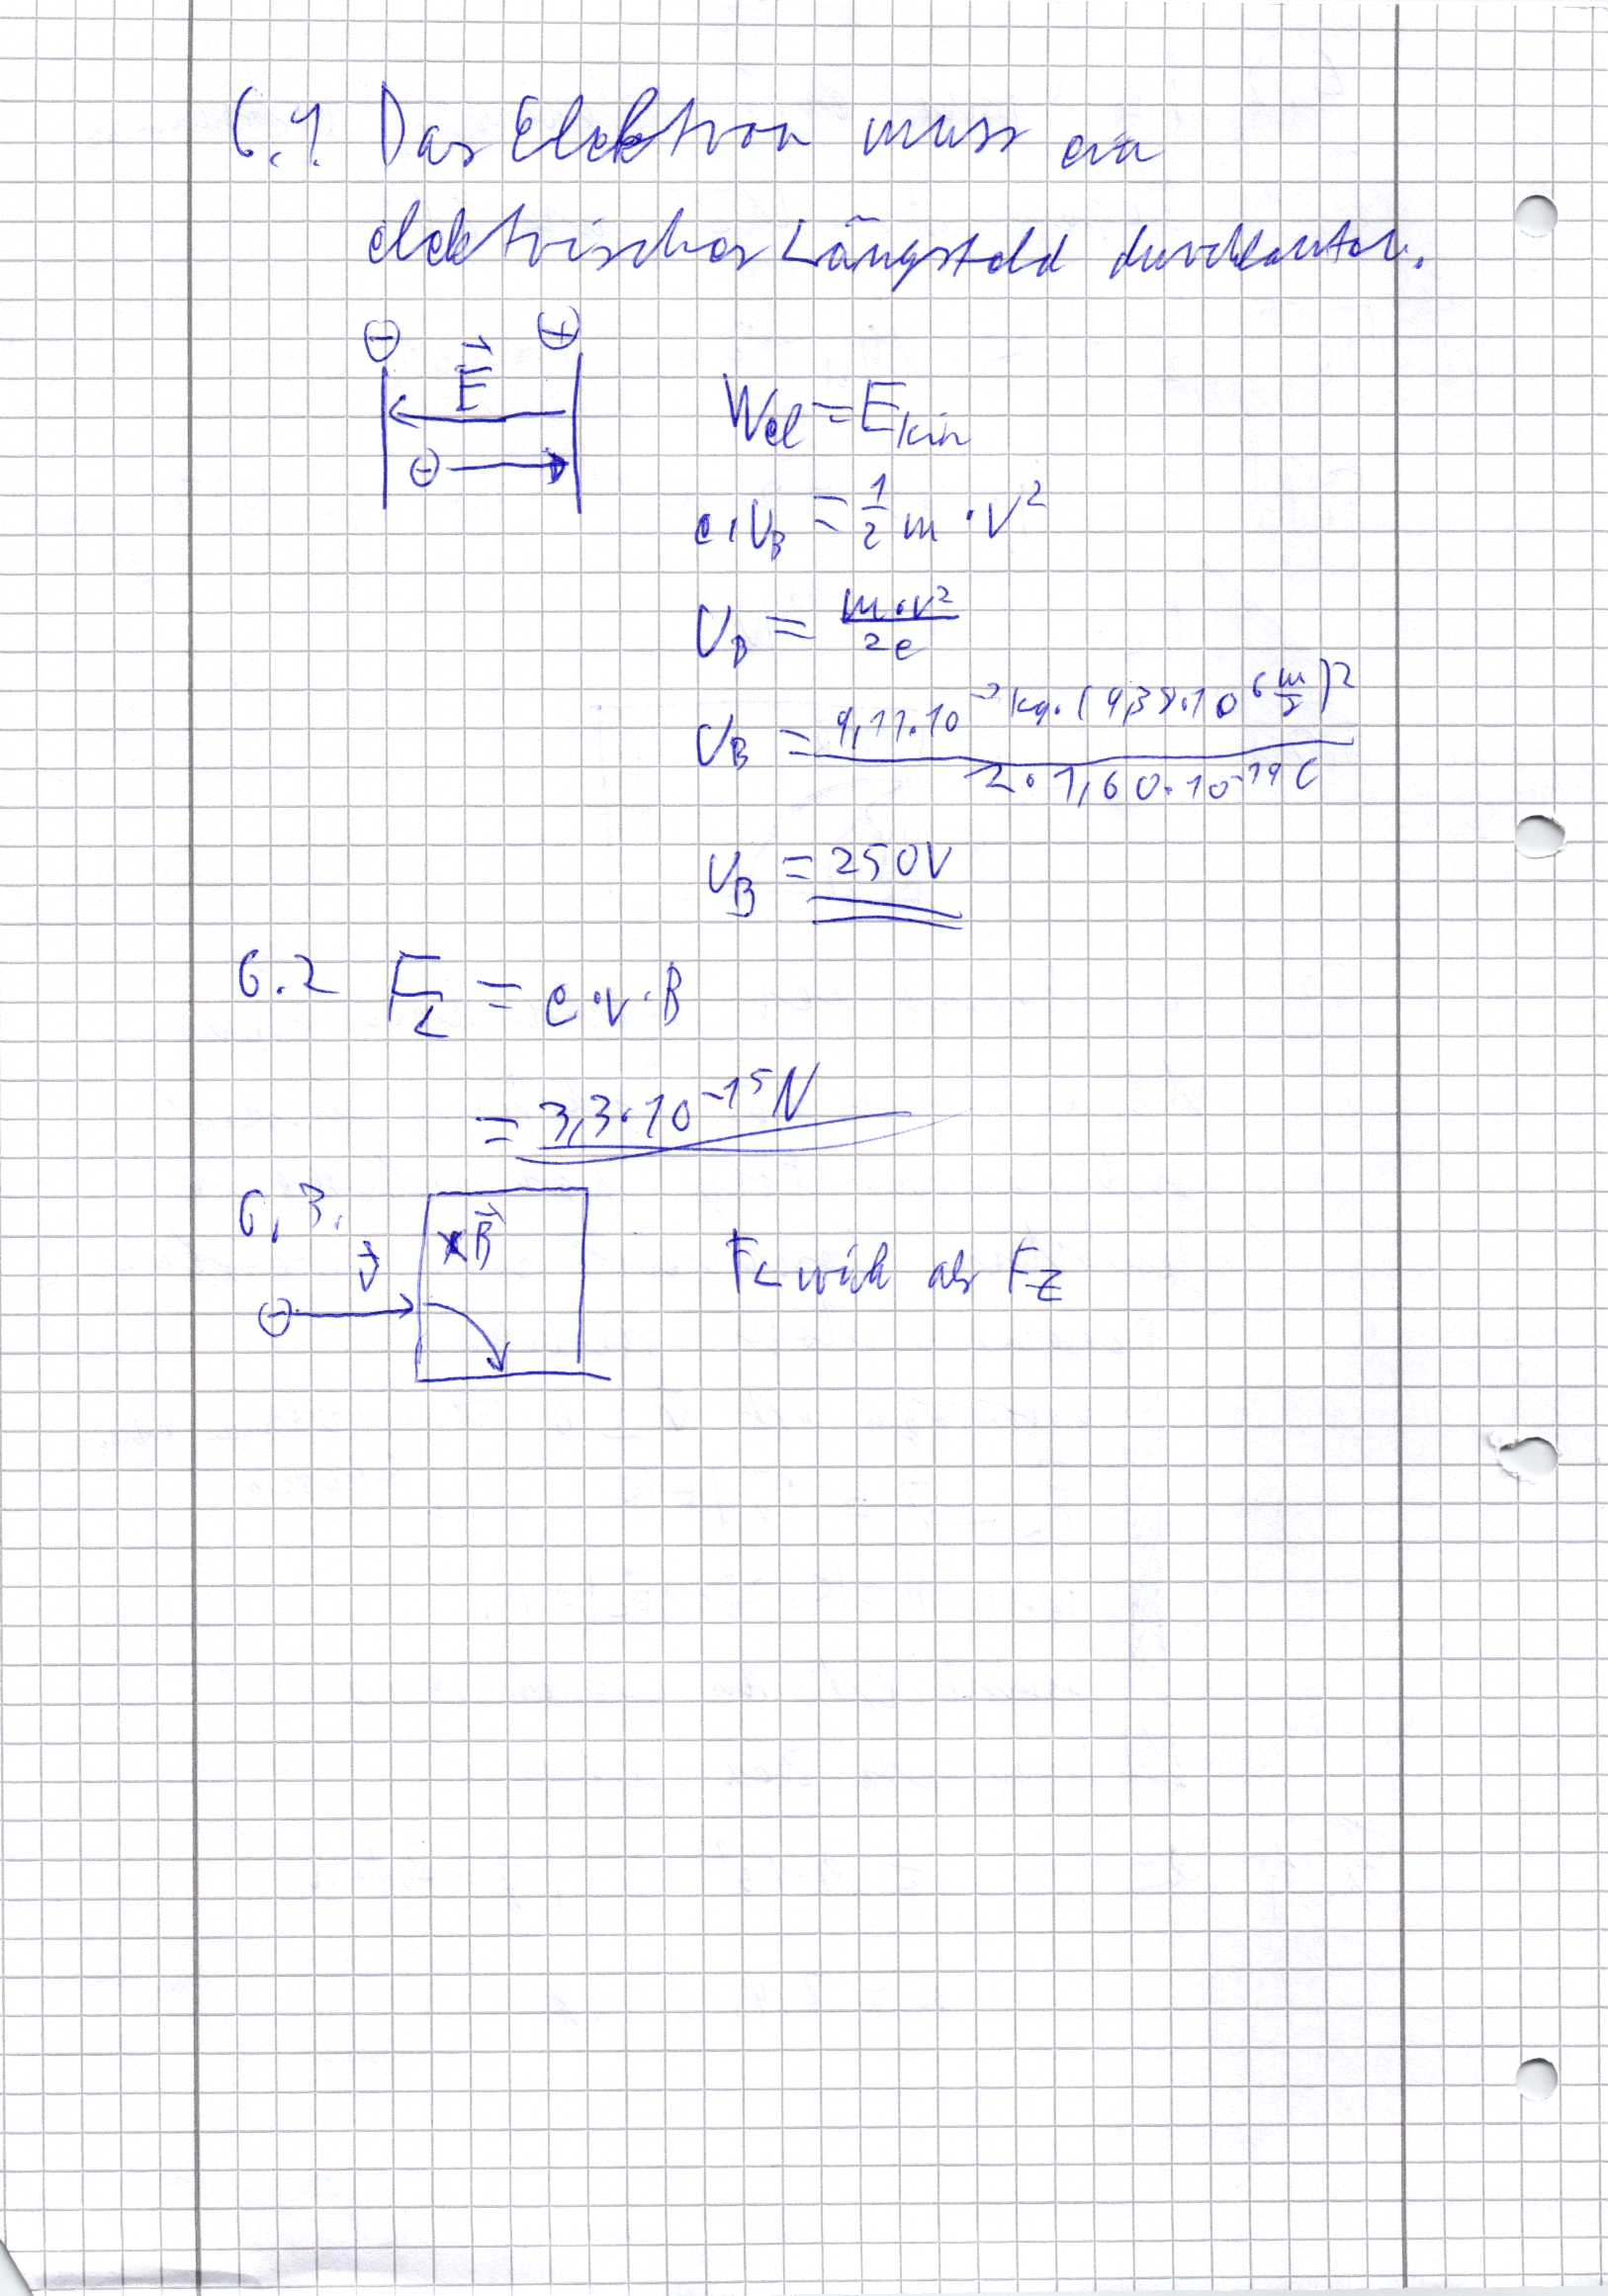 6.1 Das Elektron muss ein
elektrisches Längsfeld durchlaufen.
⊖ ⊕
E⃗
⊖
W_el = E_kin
e · U_B = 1/2 m · v²
U_B = (m · v²)/(2e)
U_B = (9,11 · 10 kg · (9,38 · 10⁶ m/s)²)/(2 · 1,60 · 10⁻¹⁹ C)
U_B = 250V
6.2 F_L = e · v · B
= 3,3 · 10⁻¹⁵ N
6.3.
v⃗
×B⃗
⊖
F_L wirkt als F_Z